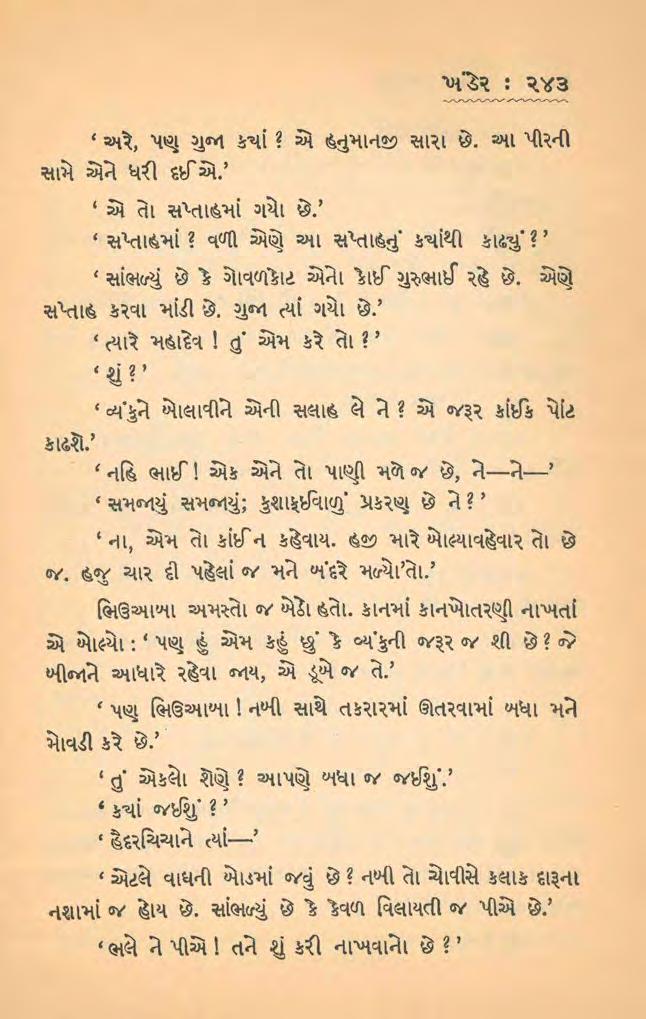 ખંડેર : ૨૪૩
‘ અરે, પણ ગુજા ક્યાં ? એ હનુમાનજી સારા છે. આ પીરની
સામે એને ધરી દઈએ.’
‘ એ તો સપ્તાહમાં ગયો છે.’
‘ સપ્તાહમાં ? વળી એણે આ સપ્તાહનું ક્યાંથી કાઢ્યું ? ’
‘ સાંભળ્યું છે કે ગોવળકોટ એનો કોઈ ગુરુભાઈ રહે છે. એણે
સપ્તાહ કરવા માંડી છે. ગુજા ત્યાં ગયો છે.’
‘ ત્યારે મહાદેવ ! તું એમ કરે તો ? ’
‘ શું ? ’
‘ વ્યંકુને બોલાવીને એની સલાહ લે ને ? એ જરૂર કાંઈક પોંટ
કાઢશે.’
‘ નહિ ભાઈ ! એક એને તો પાણી મળે જ છે, ને—ને—’
‘ સમજાયું સમજાયું; કુશાફઈવાળું પ્રકરણ છે ને ? ’
‘ ના, એમ તો કાંઈ ન કહેવાય. હજી મારે બોલ્યાવહેવાર તો છે
જ. હજુ ચાર દી પહેલાં જ મને બંદરે મળ્યો’તો.’
ભિઉઆબા અમસ્તો જ બેઠો હતો. કાનમાં કાનખોતરણી નાખતાં
એ બોલ્યો : ‘ પણ હું એમ કહું છું કે વ્યંકુની જરૂર જ શી છે ? જે
બીજાને આધારે રહેવા જાય, એ ડૂબે જ તે.’
‘ પણ ભિઉઆબા ! નબી સાથે તકરારમાં ઊતરવામાં બધા મને
મોવડી કરે છે.’
‘ તું એકલો શેણે ? આપણે બધા જ જઈશું.’
‘ ક્યાં જઈશું ? ’
‘ હૈદરચિચાને ત્યાં—’
‘ એટલે વાઘની બોડમાં જવું છે ? નબી તો ચોવીસે કલાક દારૂના
નશામાં જ હોય છે. સાંભળ્યું છે કે કેવળ વિલાયતી જ પીએ છે.’
‘ ભલે ને પીએ ! તને શું કરી નાખવાનો છે ? ’